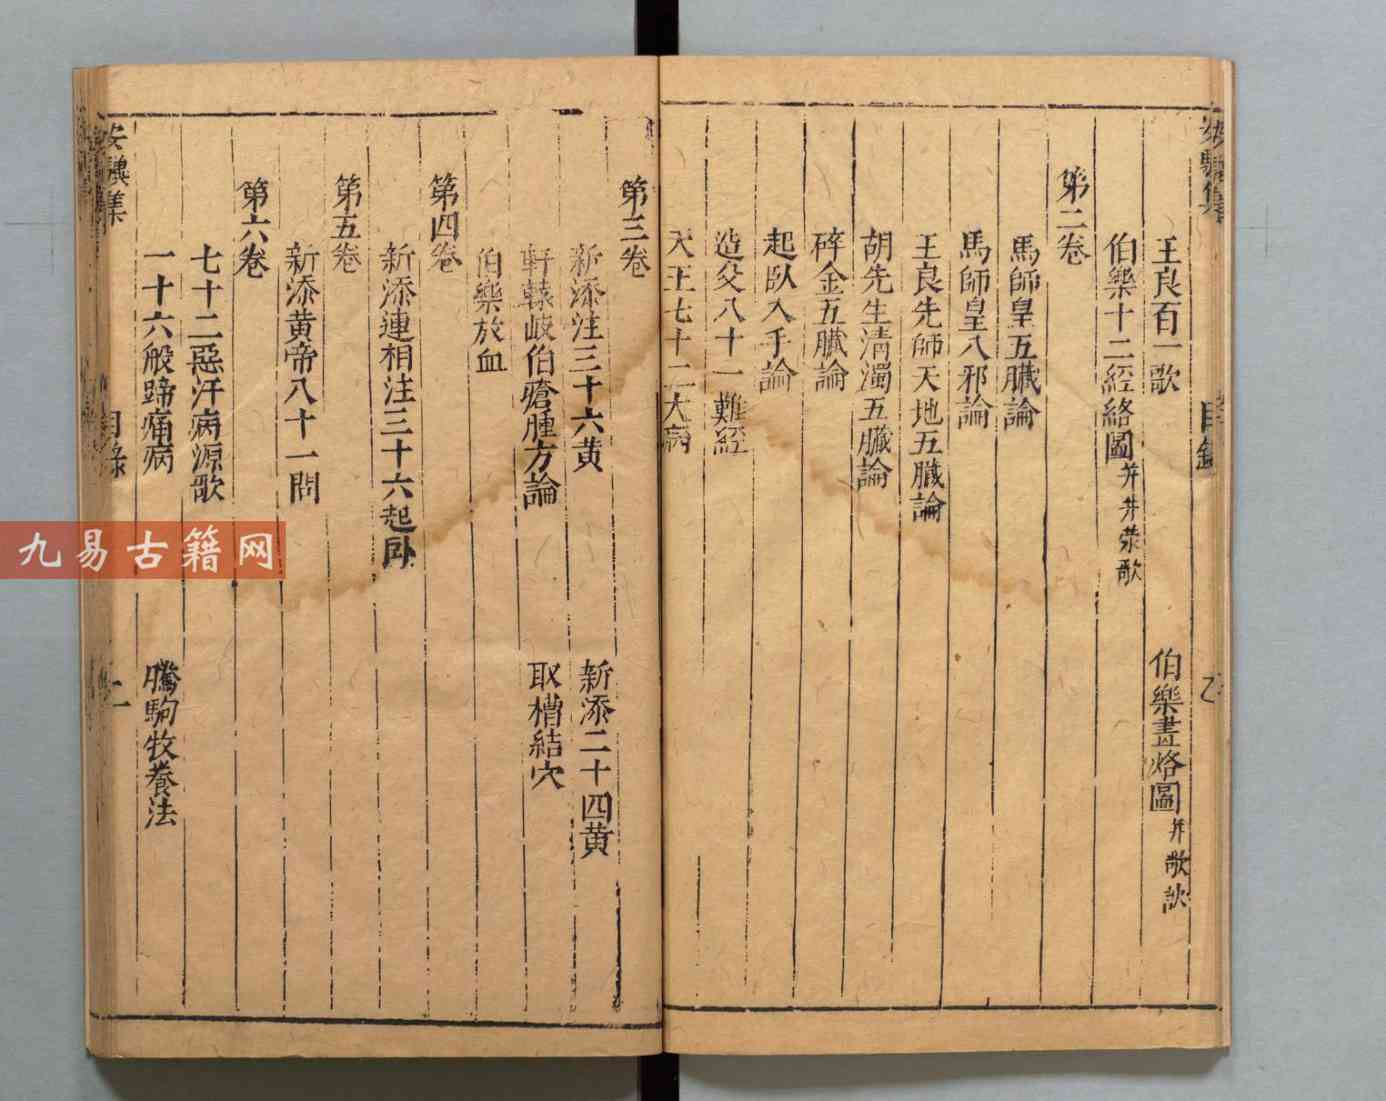 王良百一歌　伯樂畫烙圖并歌訣
伯樂十二經絡圖并井滎歌
第二卷
馬師皇五臟論
馬師皇八邪論
王良先師天地五臟論
胡先生清濁五臟論
碎金五臟論
起臥入手論
造父八十一難經
天王七十二大病
第三卷
新添注三十六黄　新添二十四黄
軒轅岐伯瘡腫方論　取槽結穴
伯樂放血
第四卷
新添連相注三十六起卧
第五卷
新添黄帝八十一問
第六卷
七十二惡汗病源歌
一十六般蹄痛病　騰駒牧養法
安驥集　目錄　二
九易古籍网